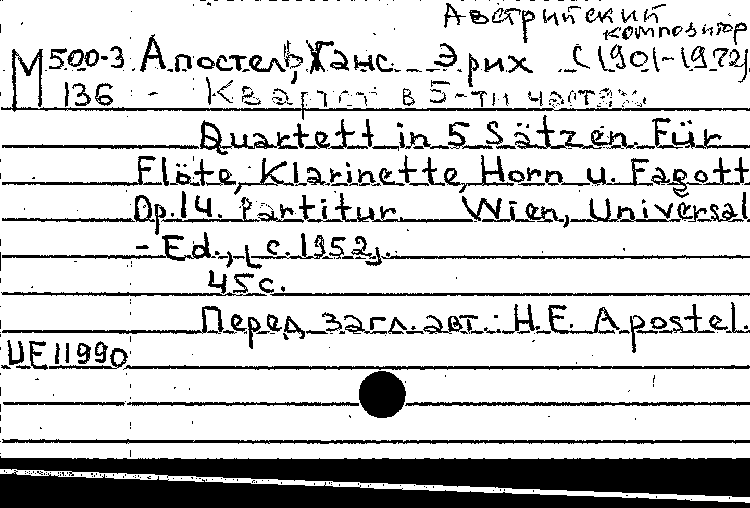 Австрийский
композитор
М 500-3 Апостель, Ханс Эрих (1901-1972)
136 - Квартет в 5-ти частях.
Quartett in 5 Sätzen. Für
Flöte, Klarinette, Horn u. Fagott
Op.14. Partitur. Wien, Universal
- Ed., [c. 1952].
45 с.
Перед загл. авт.: H.E. Apostel.
UE 11990